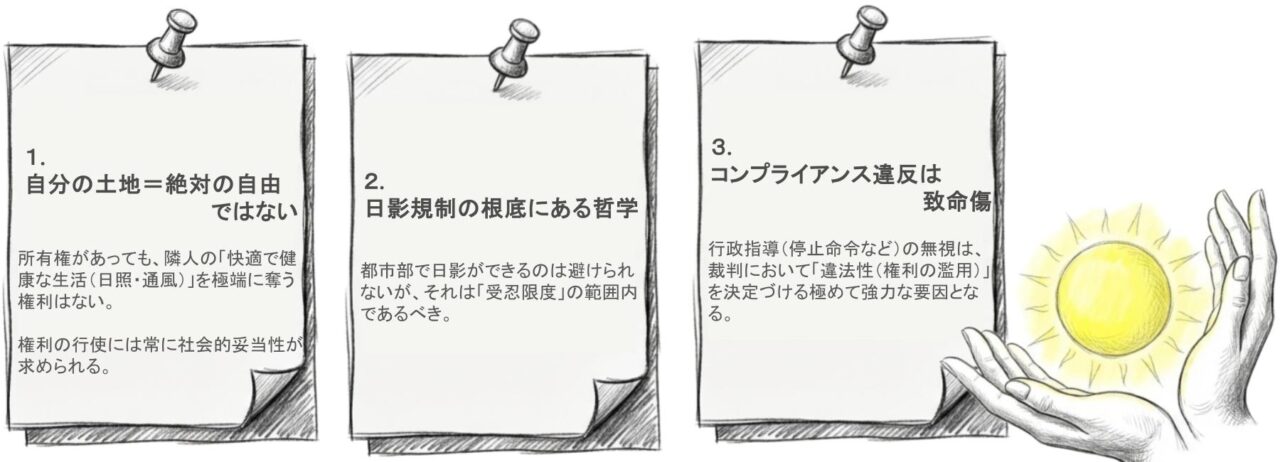 1.
自分の土地＝絶対の自由
ではない
所有権があっても、隣人の「快適で健
康な生活（日照・通風）」を極端に奪う
権利はない。
権利の行使には常に社会的妥当性が
求められる。
2.
日影規制の根底にある哲学
都市部で日影ができるのは避けられ
ないが、それは「受忍限度」の範囲内
であるべき。
3.
コンプライアンス違反は
致命傷
行政指導（停止命令など）の無視は、
裁判において「違法性（権利の濫用）」
を決定づける極めて強力な要因とな
る。